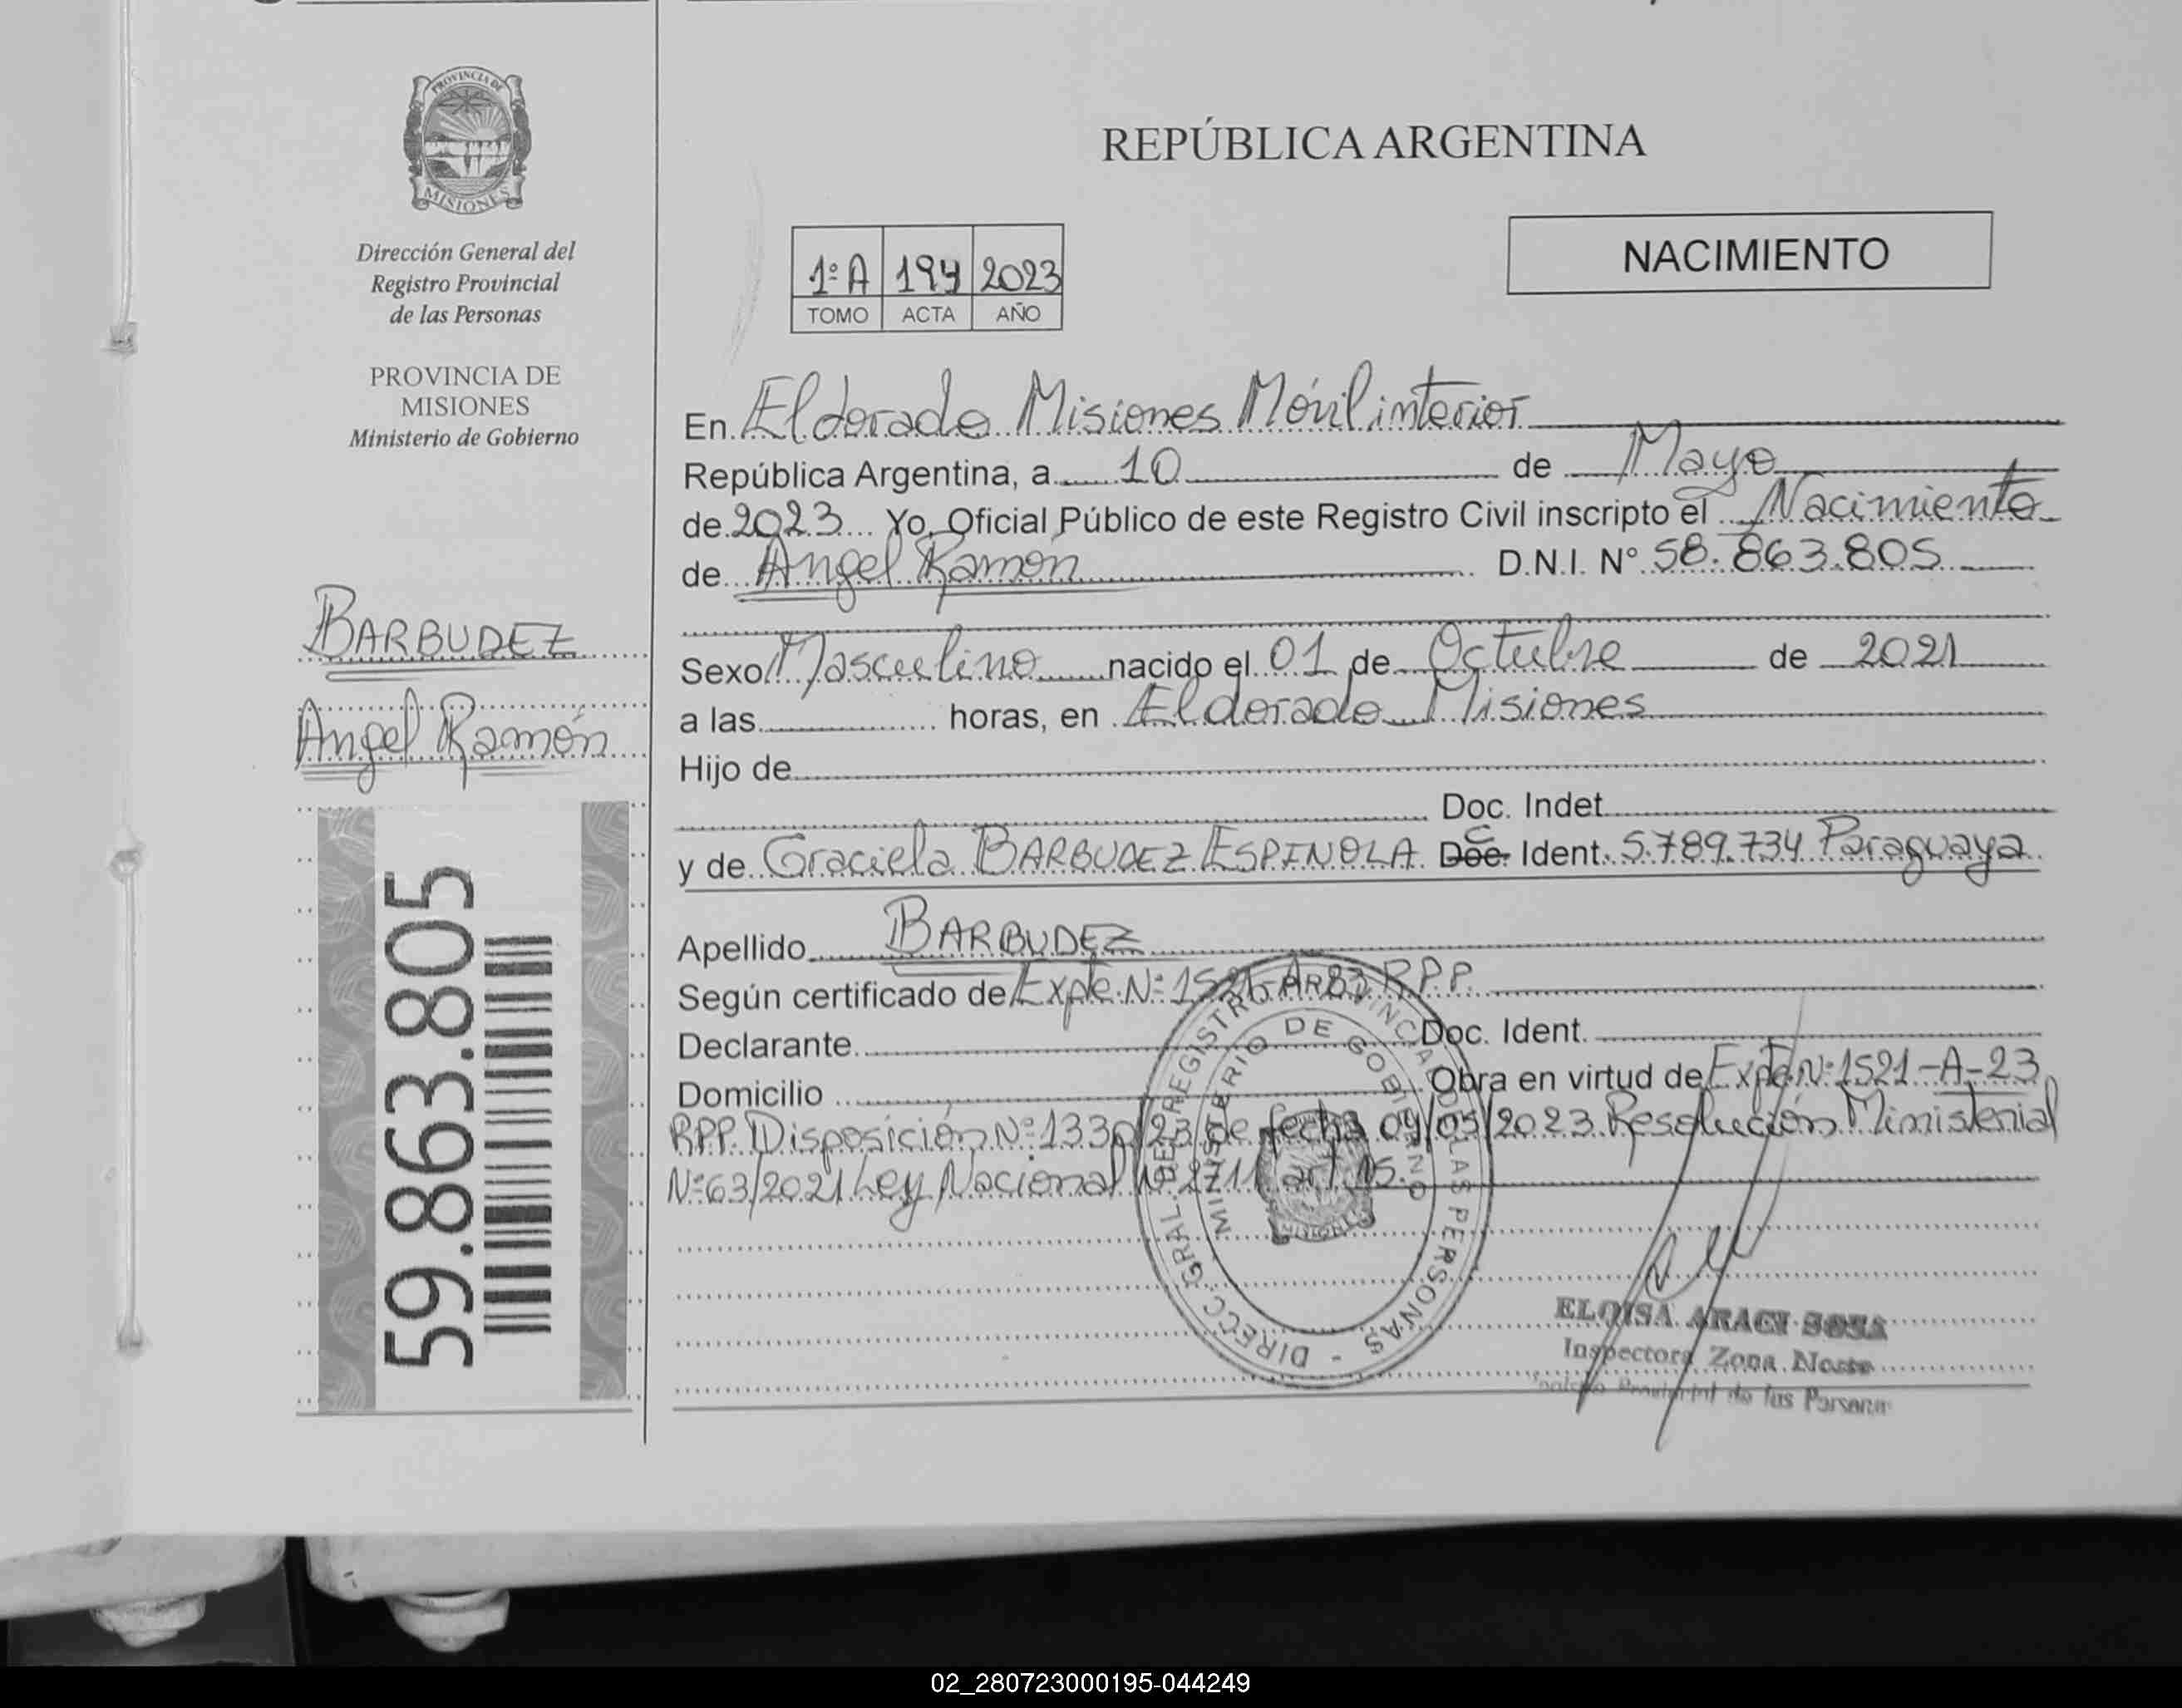 PROVINCIA DE
MISIONES
Dirección General del
Registro Provincial
de las Personas
PROVINCIA DE
MISIONES
Ministerio de Gobierno
BARBUDEZ
Angel Ramón
59.863.805
REPÚBLICA ARGENTINA
NACIMIENTO
1º A 194 2023
TOMO ACTA AÑO
En Eldorado Misiones Móvil interior
República Argentina, a 10 de Mayo
de 2023 Yo, Oficial Público de este Registro Civil inscripto el Nacimiento
de Angel Ramón D.N.I. Nº 58.863.805
Sexo Masculino nacido el 01 de Octubre de 2021
a las horas, en Eldorado Misiones
Hijo de
Doc. Indet.
y de Graciela BARBUDEZ ESPINOLA Doc. C Ident. 5.789.734 Paraguaya
Apellido BARBUDEZ
Según certificado de Expte. Nº 1521-A-23 RPP.
Declarante Doc. Ident.
Domicilio Obra en virtud de Expte Nº 1521-A-23
RPP. Disposición Nº 1330/23 de fecha 09/05/2023 Resolución Ministerial
Nº 63/2021 Ley Nacional Nº 2711 art 15.
DIRECC. GRAL. DE REGISTRO PROVINCIAL DE LAS PERSONAS -
MINISTERIO DE GOBIERNO
MISIONES
ELOISA ARACI SOSA
Inspectora Zona Norte
Provincial de las Personas
02_280723000195-044249